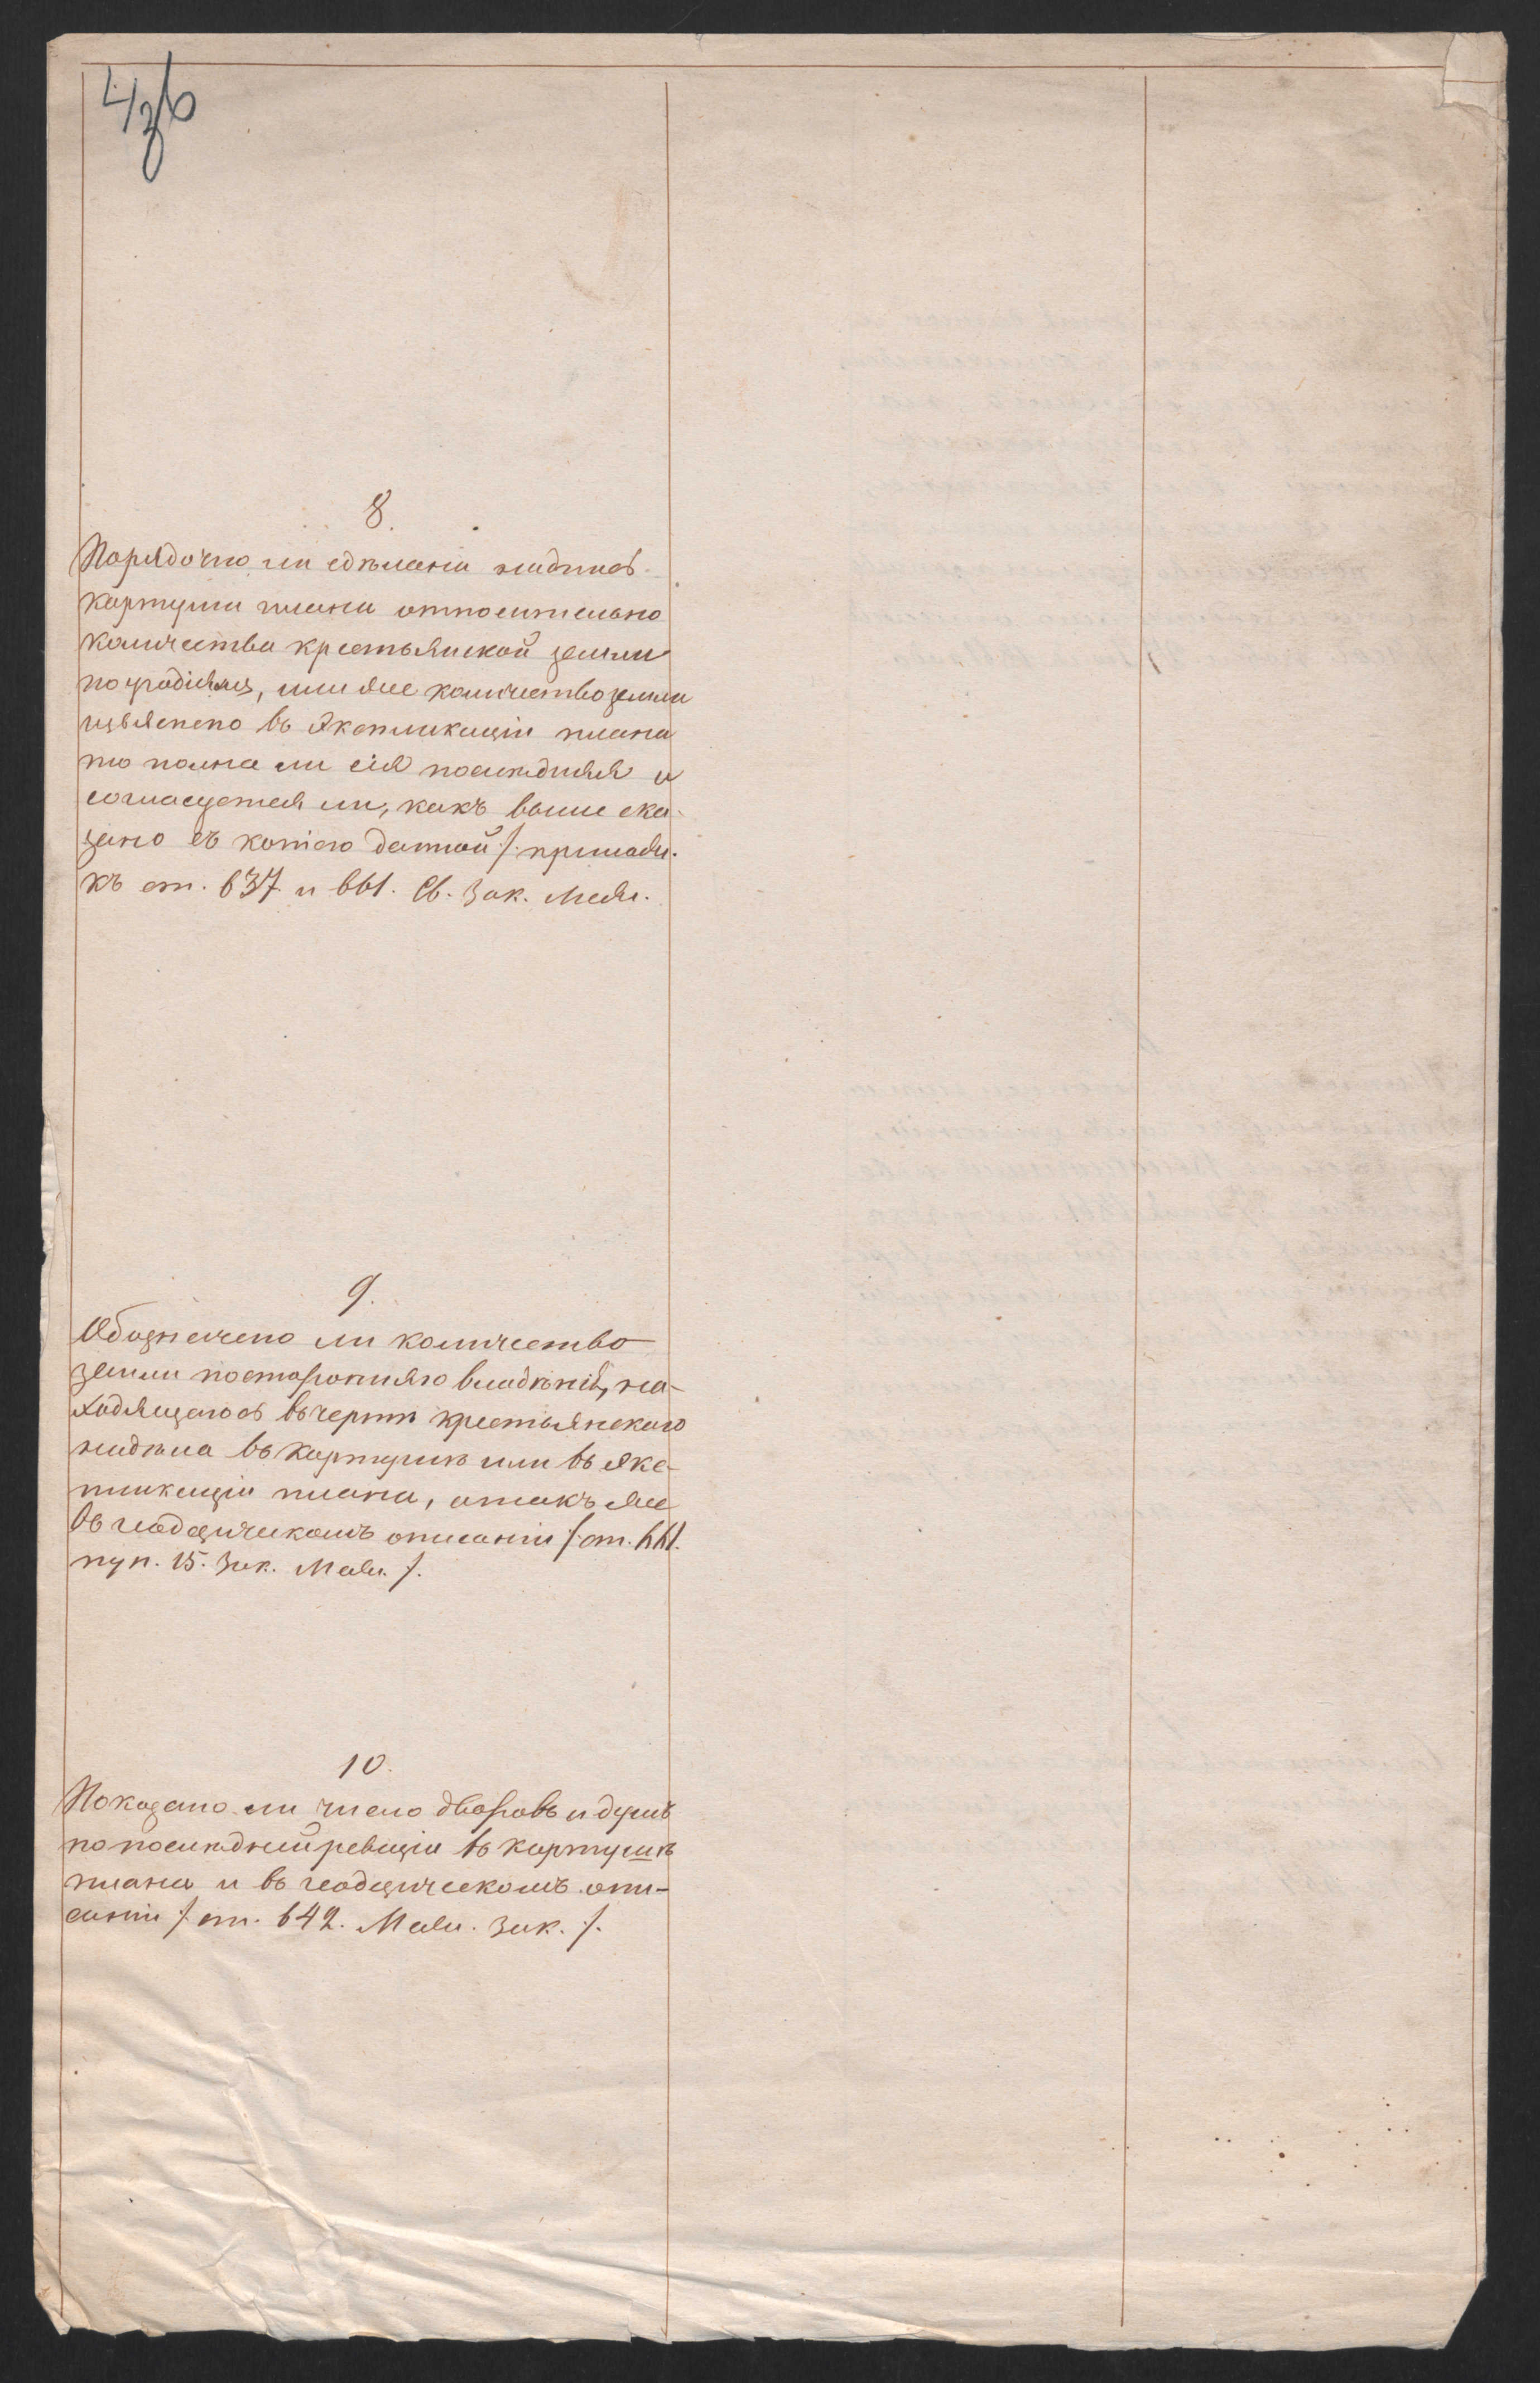 8.
Порядочно ли сдѣлана надпись
картуши плана относительно
количества крестьянской земли
по угодіямъ, или же количество земли
изъяснено въ экспликаціи плана
то полна ли сія послѣдняя и
согласуется ли, какъ выше ска-
зано съ копіею данной /: прилож.
къ ст. 637 и 661. Св. Зак. Меж.
9.
Обозначено ли количество
земли посторонняго владѣнія, на-
ходящагося въ чертѣ крестьянскаго
надѣла въ картушѣ или въ экс-
пликаціи плана, а такъ же
въ геодезическомъ описаніи /: ст. 661.
пун. 15. Зак. Меж. :/.
10.
Показано ли число дворовъ и душъ
по послѣдней ревизіи въ картушѣ
плана и въ геодезическомъ опи-
саніи /: ст. 642. Меж. Зак. :/.